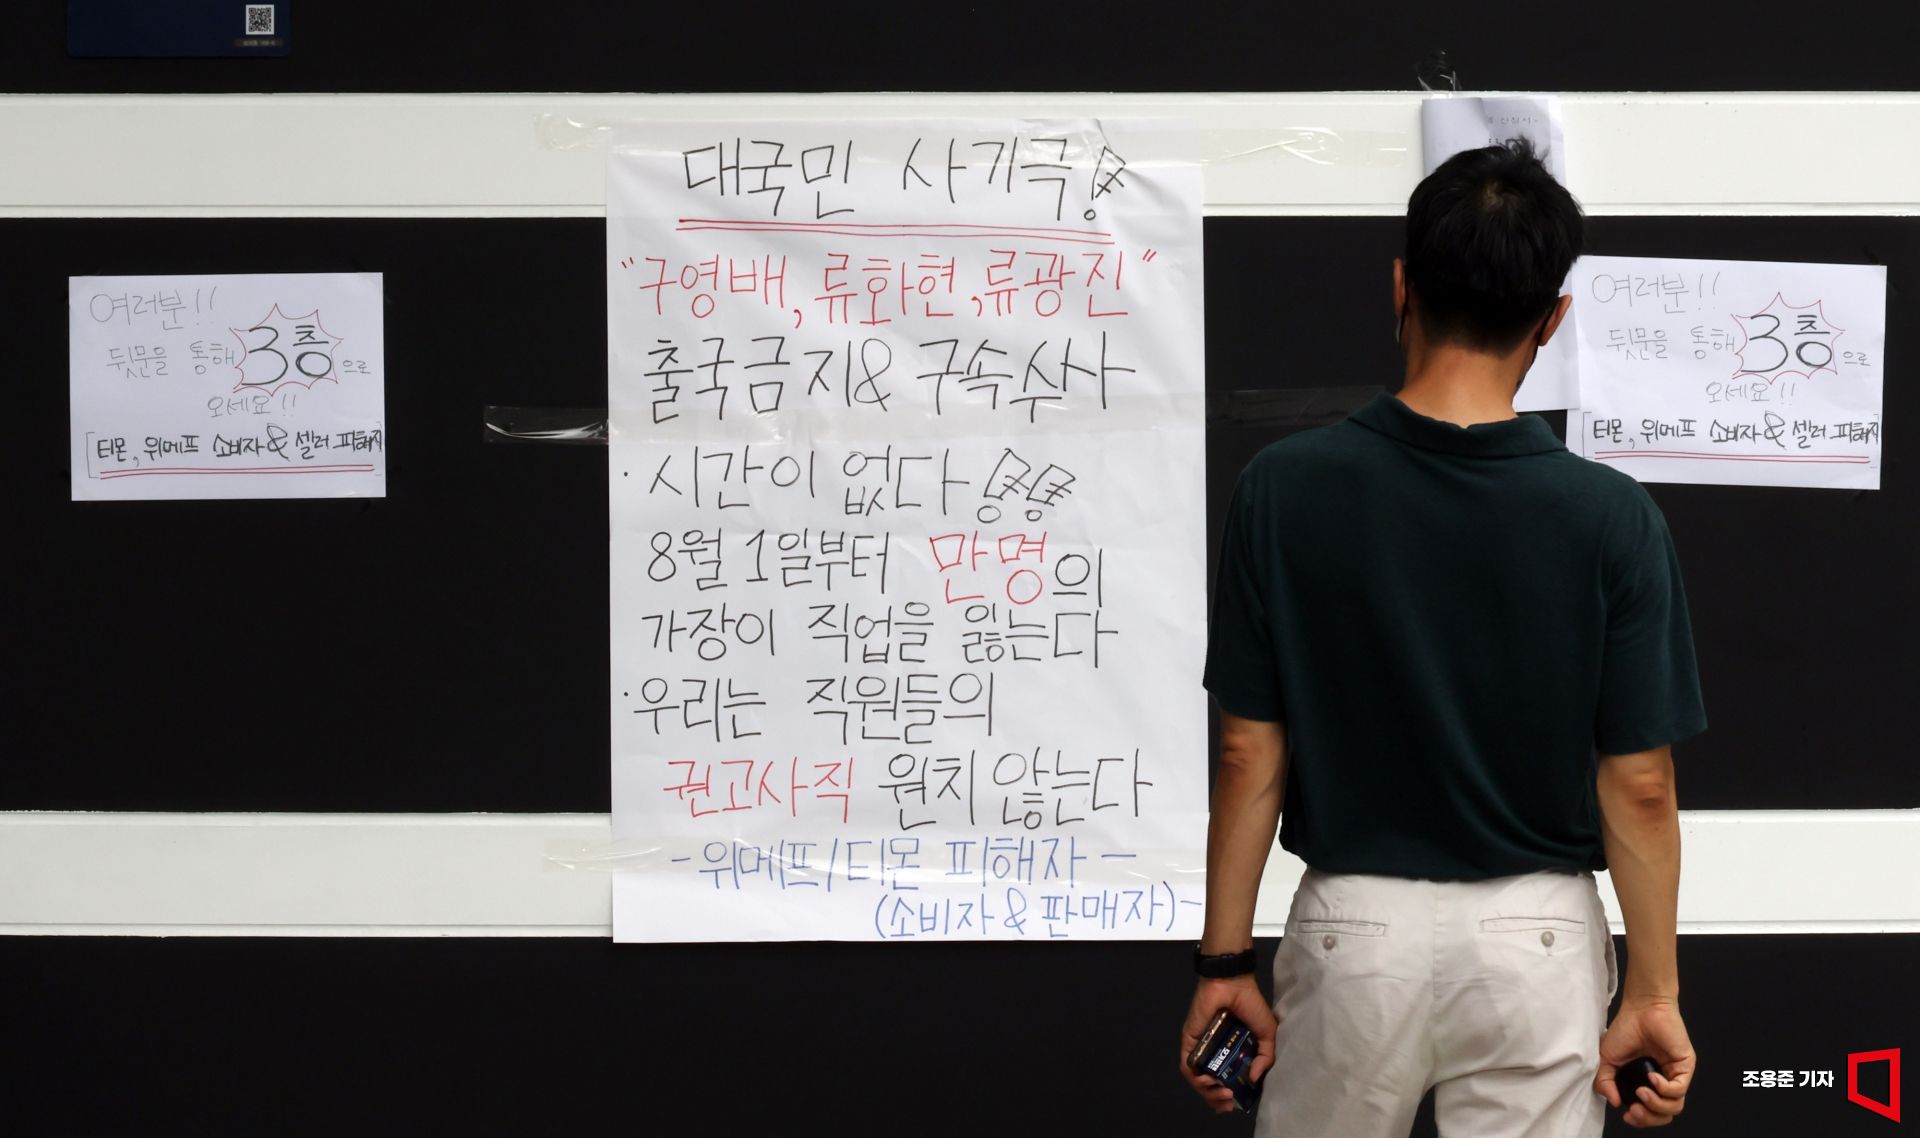 여러분!!
뒷문을 통해 3층으로
오세요!!
[티몬, 위메프 소비자 & 셀러 피해자]
대국민 사기극!
"구영배, 류화현, 류광진"
출국금지 & 구속수사
· 시간이 없다!!
8월 1일부터 만명의
가장이 직업을 잃는다
· 우리는 직원들의
권고사직 원치 않는다
- 위메프/티몬 피해자 -
(소비자 & 판매자) -
여러분!!
뒷문을 통해 3층으로
오세요!!
[티몬, 위메프 소비자 & 셀러 피해자
조용준 기자